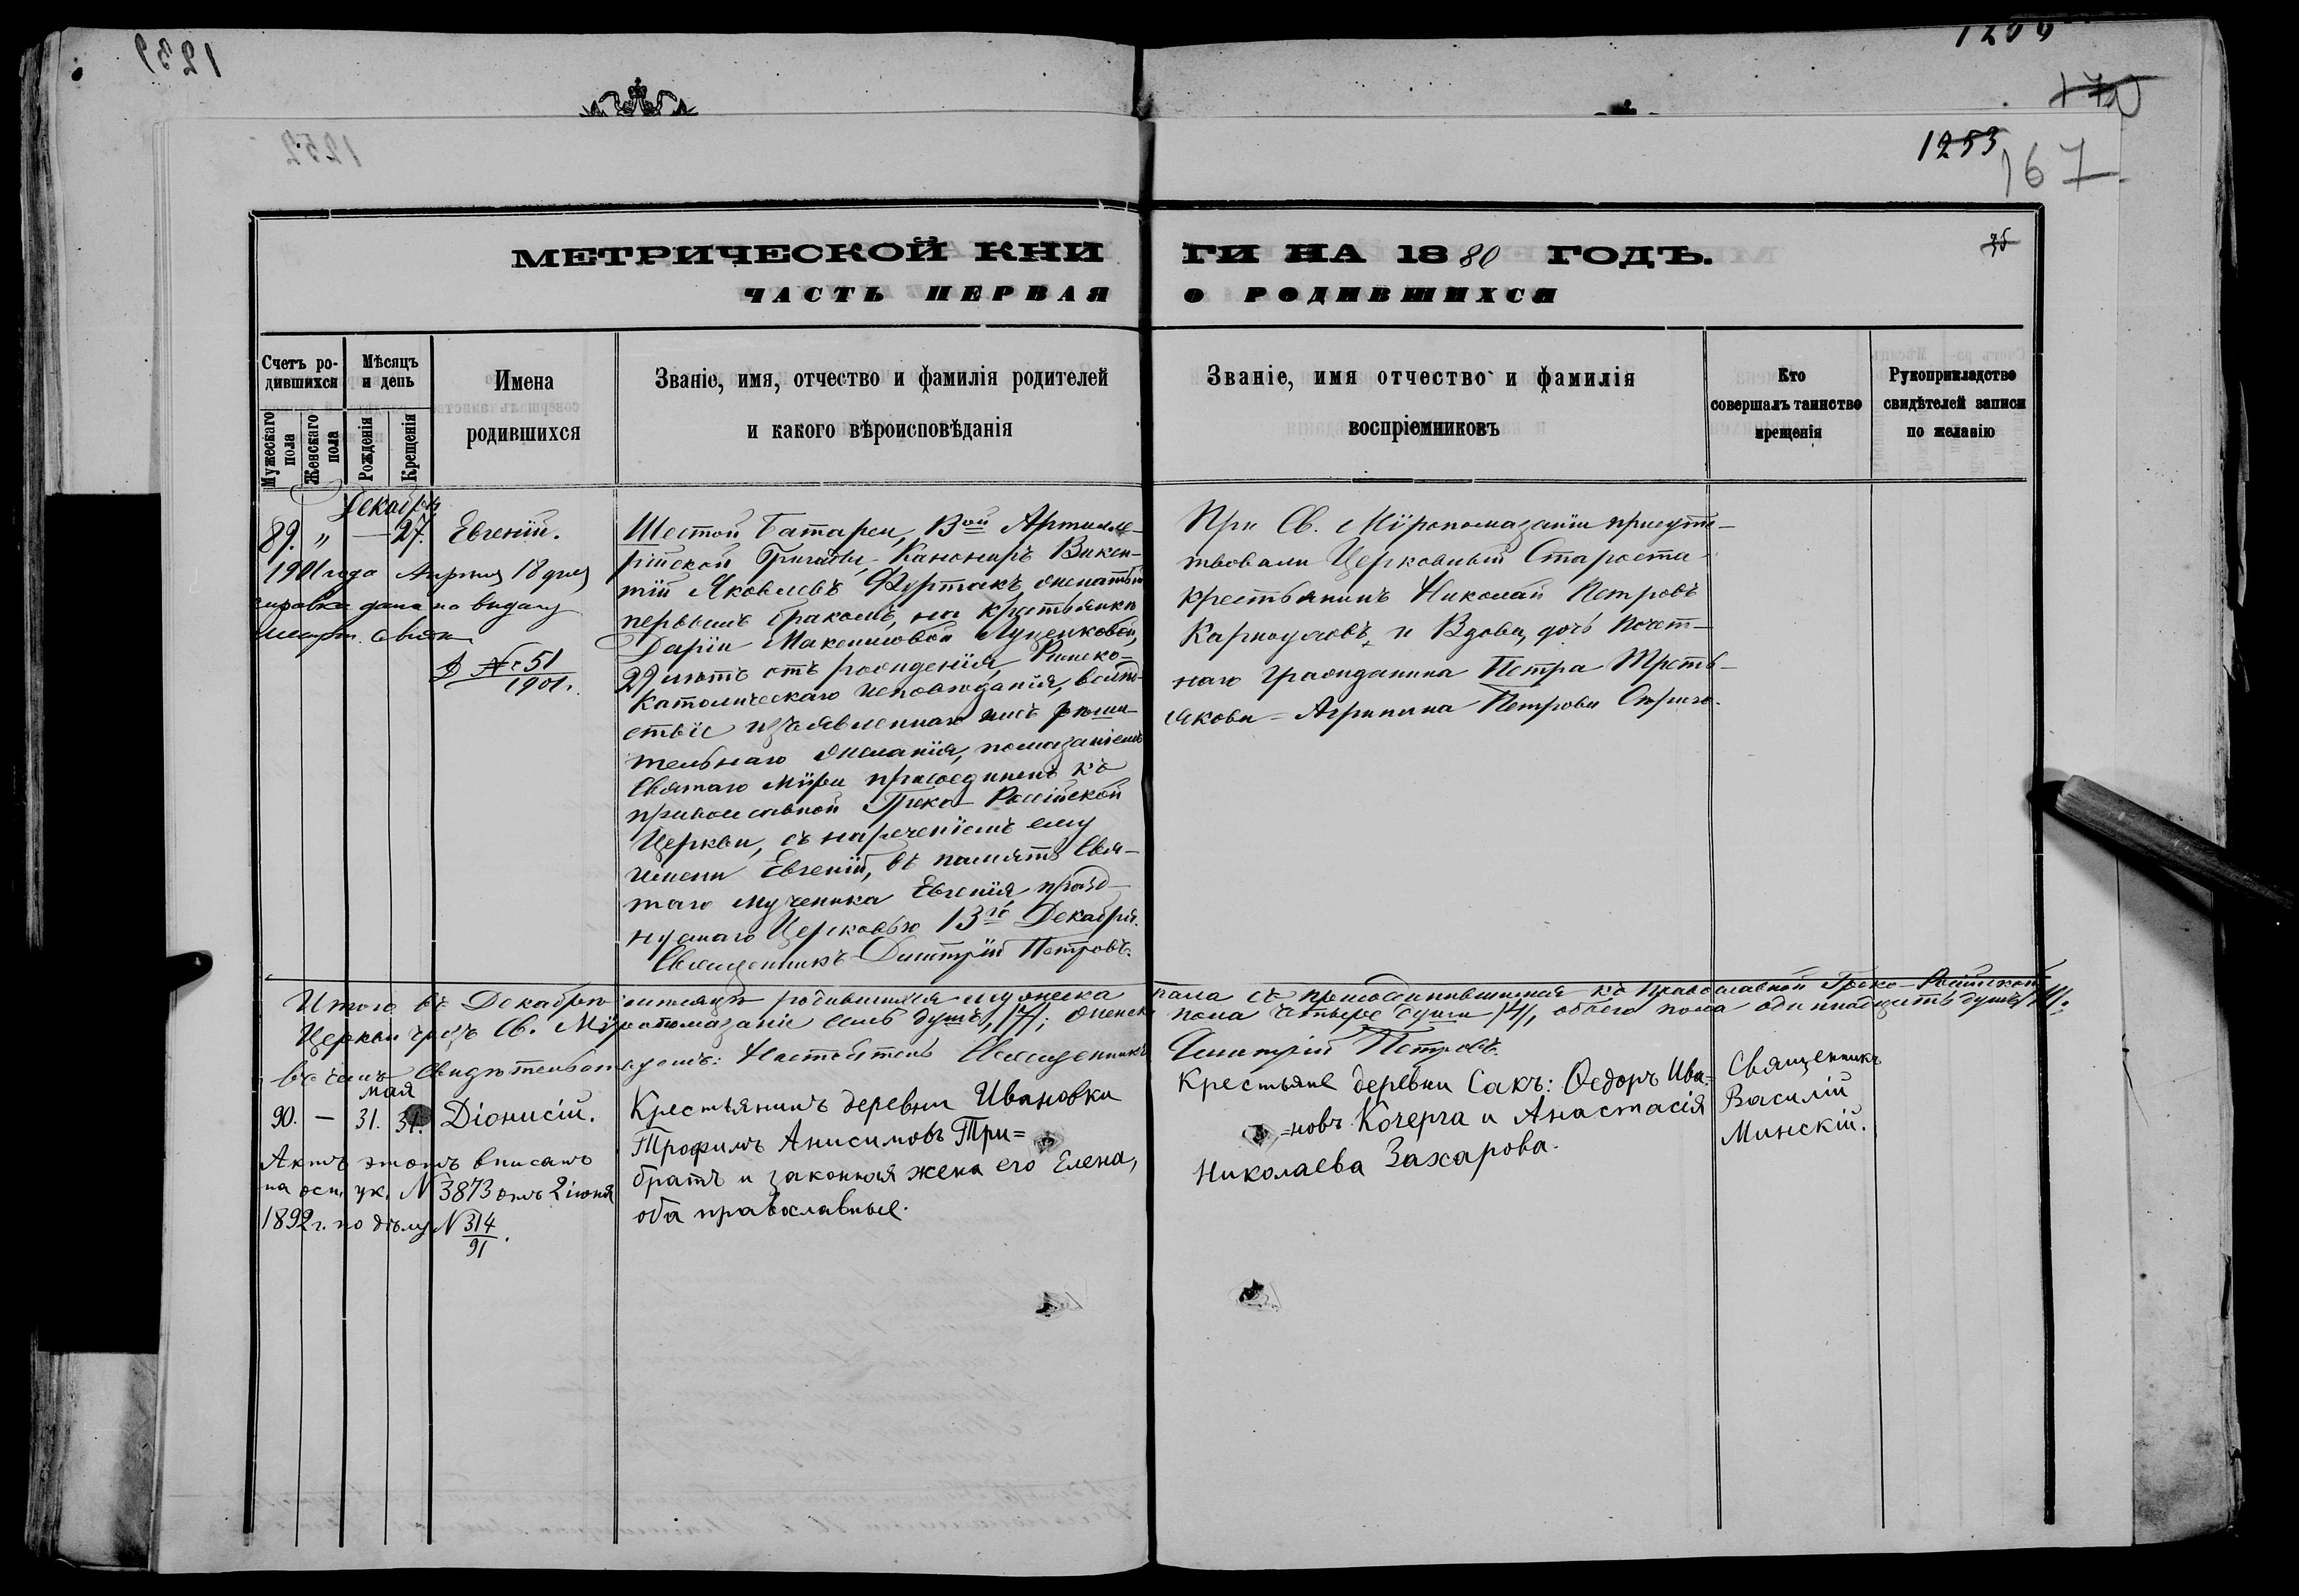 1239
1252
1253
167
МЕТРИЧЕСКОЙ КНИ ГИ НА 1880 ГОДЪ.
ЧАСТЬ ПЕРВАЯ О РОДИВШИХСЯ
Счетъ ро-
дившихся
Мужескаго пола
Женскаго пола
Мѣсяцъ
и день
Рожденія
Крещенія
Имена
родившихся
Званіе, имя, отчество и фамилія родителей
и какого вѣроисповѣданія
Званіе, имя отчество и фамилія
воспріемниковъ
Кто
совершалъ таинство
крещенія
Рукоприкладство
свидѣтелей записи
по желанію
Декабрь
89. " — 27. Евгеній.
1901 года Апрѣля 18 дня
справка дана на выдачу
№ 51
1901.
Шестой Батареи, Артилле-
рійской Бригады, Канониръ Викен-
тій Яковлевъ Фуртакъ, женатый
первымъ бракомъ, на крестьянкѣ
Даріи Максимовой Луценковой,
29 лѣтъ отъ рожденія, Римско-
Католическаго исповѣданія, вслѣд-
ствіе изъявленнаго имъ рѣши-
тельнаго желанія, помазаніемъ
Святаго Мѵра присоединенъ къ
православной Греко-Россійской
Церкви, съ нареченіемъ ему
имени Евгеній, въ память Свя-
таго мученика Евгенія, празд-
нуемаго Церковью 13го Декабря.
Священникъ Димитрій Петровъ.
При Св. Мѵропомазаніи присутс-
твовали Церковный Староста
крестьянинъ Николай Петровъ
Карноуховъ, и Вдова, дочь Почет-
наго Гражданина Петра Треть-
якова - Агрипина Петрова
Итого въ Декабрѣ мѣсяцѣ родившихся мужеска пола съ присоединившимся къ православной Греко-Россійской
Церкви чрезъ Св. Мѵропомазаніе семь душъ /7/; женска пола четыре души /4/, обоего пола одиннадцать душъ /11/.
въ чемъ свидѣтельствуемъ: Настоятель Священникъ Димитрій Петровъ.
мая
90. — 31. 31. Діонисій.
Актъ этотъ вписанъ
на осн. ук. N 3873 отъ 2 іюня
1892 г. по дѣлу N 314
91.
Крестьянинъ деревни Ивановки
Трофимъ Анисимовъ Три=
братъ и законная жена его Елена,
оба православные.
Крестьяне деревни Сакъ: Ѳедоръ Ива=
=новъ Кочерга и Анастасія
Николаева Захарова.
Священникъ
Василій
Минскій.